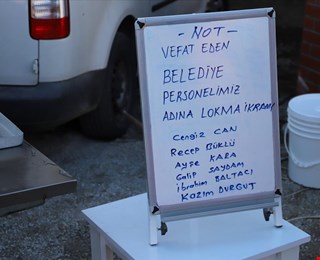 - NOT -
- VEFAT EDEN
BELEDİYE
PERSONELİMİZ
ADINA LOKMA İKRAMI
Cengiz CAN
Recep BÜKLÜ
Ayşe KARA
Galip SAYDAM
İbrahim BALTACI
Kazım DURGUT